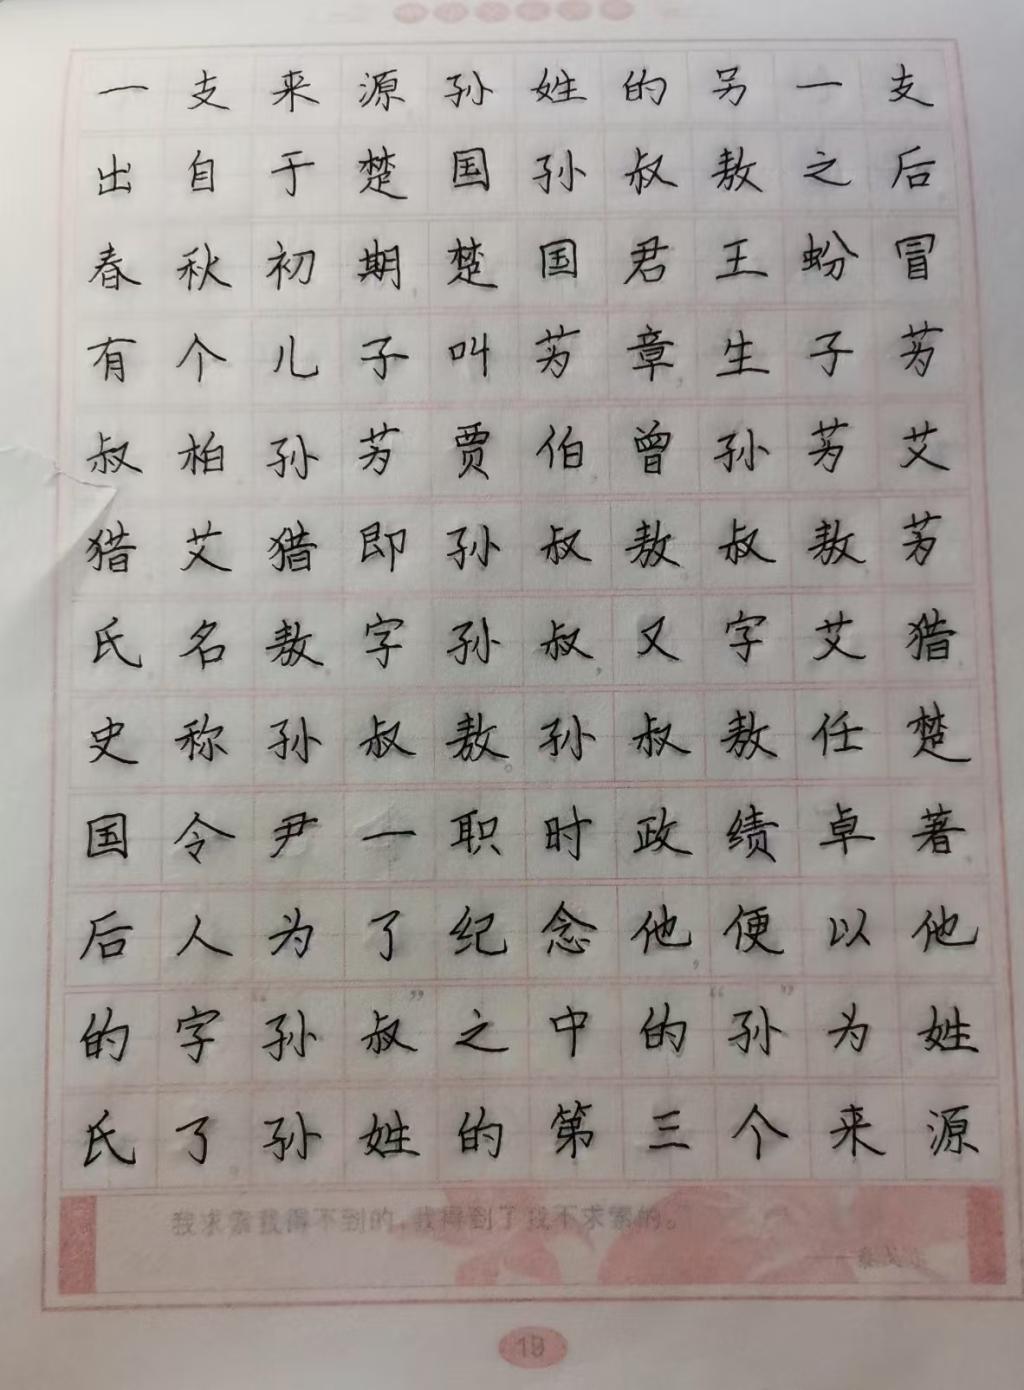 一支来源孙姓的另一支
出自于楚国孙叔敖之后
春秋初期楚国君王蚡冒
有个儿子叫芳章，生子芳
叔柏孙芳贾伯曾孙芳艾
猎艾猎即孙叔敖叔敖芳
氏名敖字孙叔，又字艾猎
史称孙叔敖。孙叔敖任楚
国令尹一职时政绩卓著
后人为了纪念他，便以他
的字“孙叔”之中的“孙”为姓
氏了孙姓的第三个来源
我求索我得不到的，我得到了我不求索的。
19